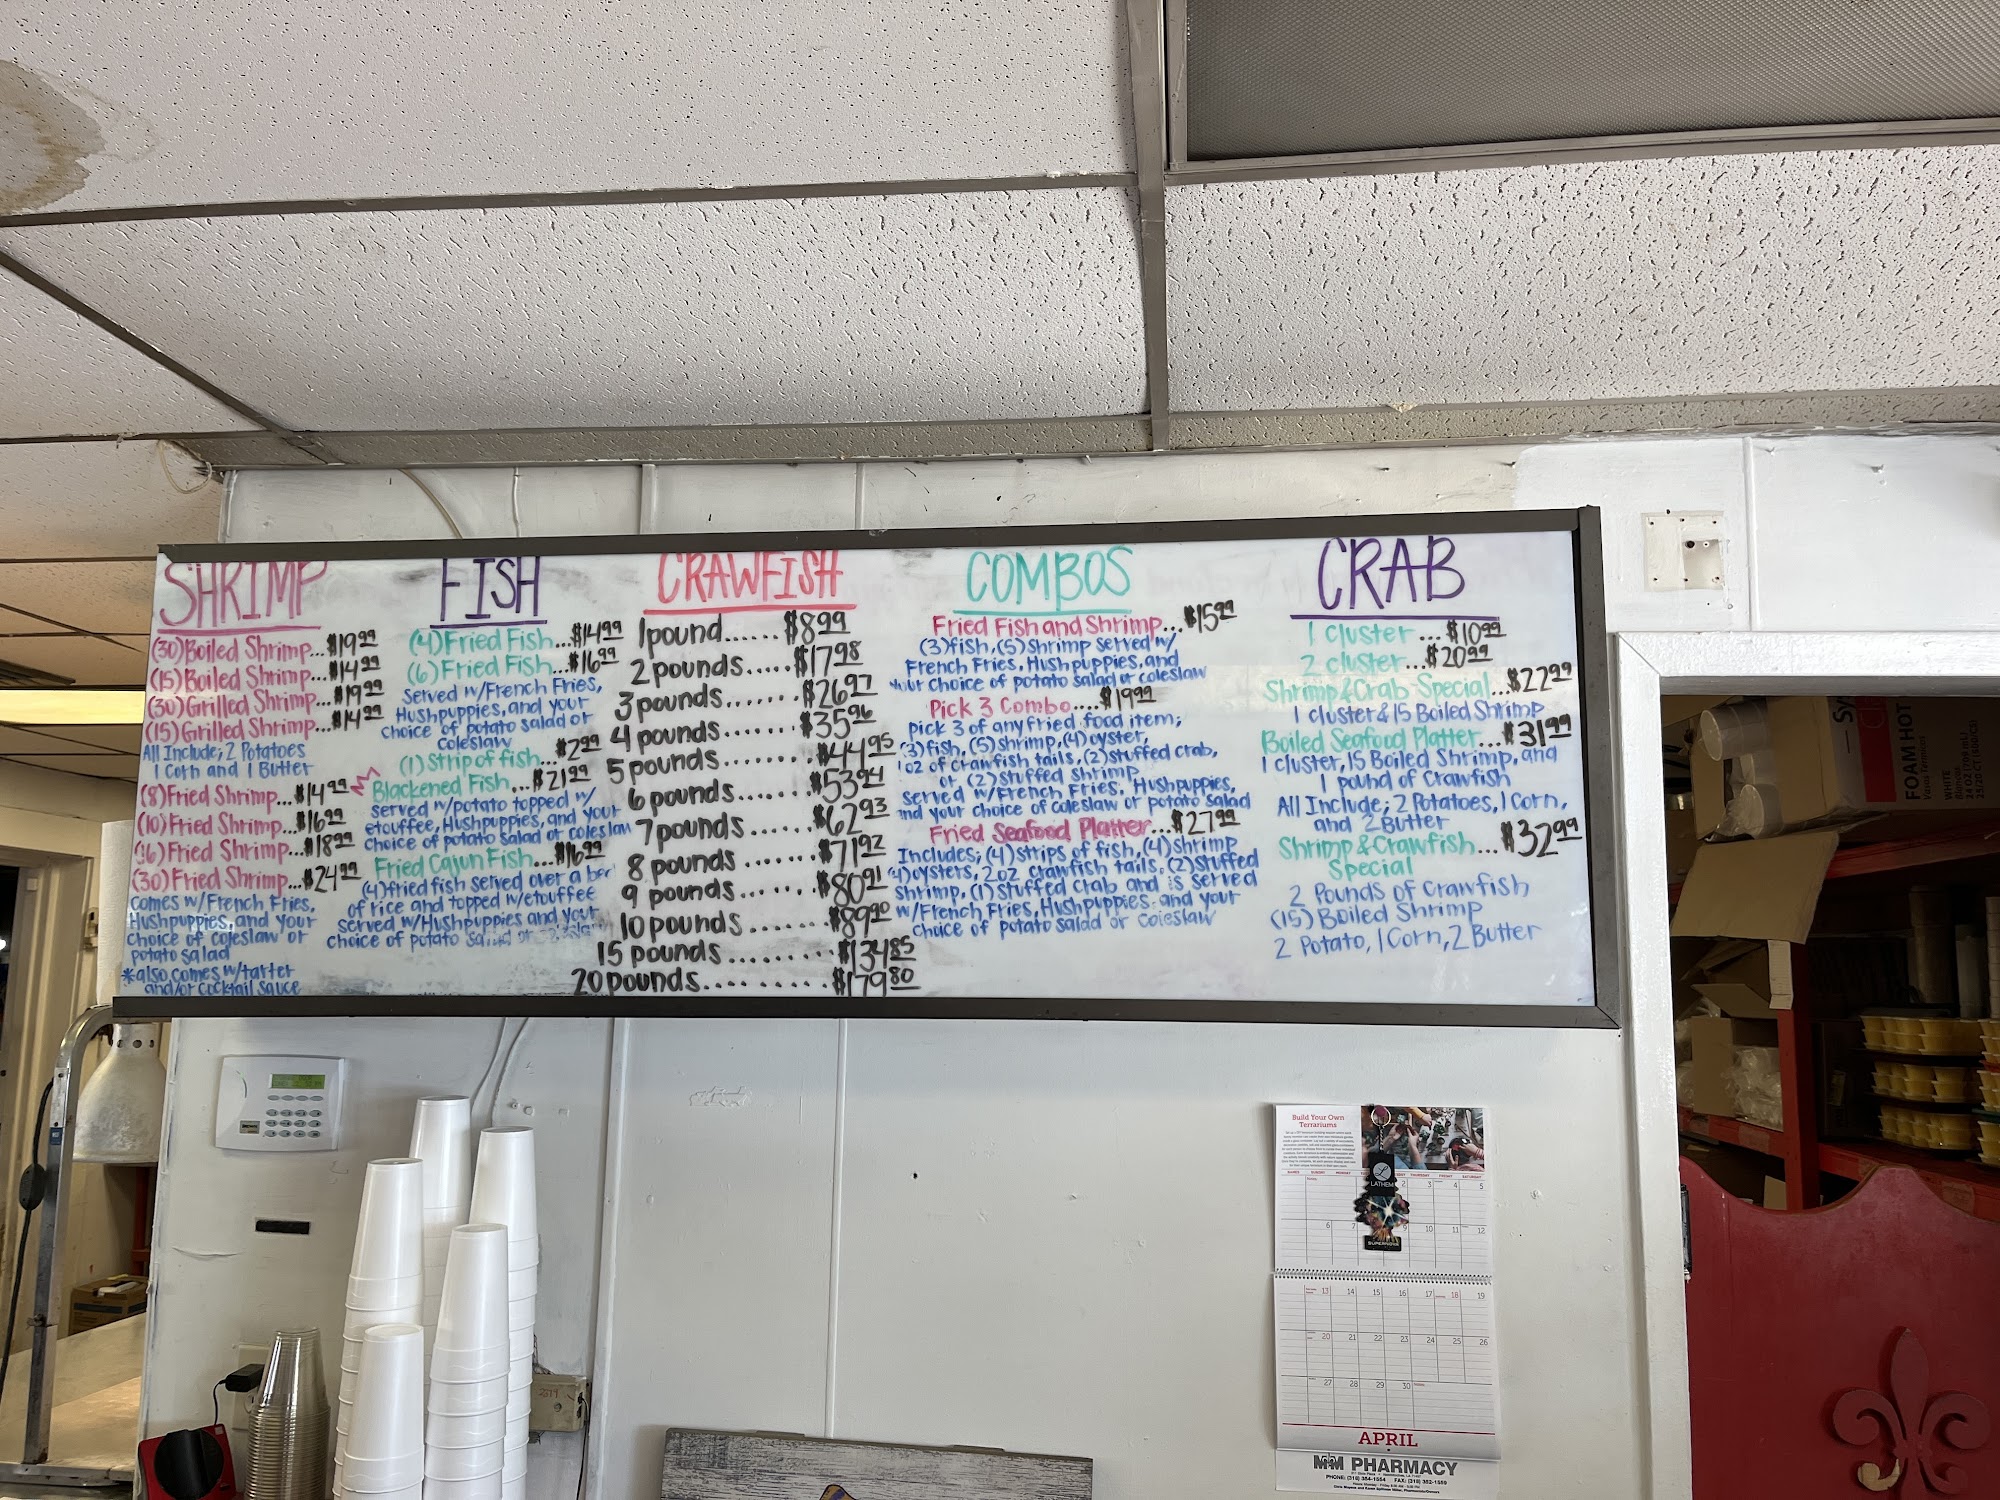 SHRIMP
(30) Boiled Shrimp... $19.99
(15) Boiled Shrimp... $14.99
(30) Grilled Shrimp... $19.99
(15) Grilled Shrimp... $14.99
All Include; 2 Potatoes
1 Corn and 1 Butter
(8) Fried Shrimp... $14.99
(10) Fried Shrimp... $16.99
(16) Fried Shrimp... $18.99
(30) Fried Shrimp... $24.99
comes w/French Fries,
Hushpuppies, and your
choice of coleslaw or
potato salad
*also comes w/tarter
and/or cocktail sauce
FISH
(4) Fried Fish... $14.99
(6) Fried Fish... $16.99
served w/French Fries,
Hushpuppies, and your
choice of potato salad or
coleslaw
(1) Strip of fish... $2.99
Blackened Fish... $21.99
served w/potato topped w/
etouffee, Hushpuppies, and your
choice of potato salad or coleslaw
Fried Cajun Fish... $16.99
(4) fried fish served over a bed
of rice and topped w/etouffee
served w/Hushpuppies and your
choice of potato salad or coleslaw
CRAWFISH
1 pound...... $8.99
2 pounds..... $17.98
3 pounds...... $26.97
4 pounds...... $35.96
5 pounds...... $44.95
6 pounds....... $53.94
7 pounds...... $62.93
8 pounds....... $71.92
9 pounds....... $80.91
10 pounds....... $89.90
15 pounds......... $134.85
20 pounds.......... $179.80
COMBOS
Fried Fish and Shrimp... $15.99
(3) fish, (5) shrimp served w/
French Fries, Hushpuppies, and
your choice of potato salad or coleslaw
Pick 3 Combo.... $19.99
Pick 3 of any fried food item;
(3) fish, (5) shrimp, (4) oyster,
oz of crawfish tails, (2) stuffed crab,
or (2) stuffed shrimp
served w/French Fries, Hushpuppies,
and your choice of coleslaw or potato salad
Fried Seafood Platter... $27.99
Includes; (4) strips of fish, (4) shrimp
(4) oysters, 2oz crawfish tails, (2) stuffed
shrimp, (1) stuffed crab and is served
w/French Fries, Hushpuppies, and your
choice of potato salad or coleslaw
CRAB
1 cluster ... $10.99
2 cluster... $20.99
Shrimp & Crab Special... $22.99
1 cluster & 15 Boiled Shrimp
Boiled Seafood Platter... $31.99
1 cluster, 15 Boiled Shrimp, and
1 pound of Crawfish
All Include; 2 Potatoes, 1 Corn,
and 2 Butter
Shrimp & Crawfish... $32.99
Special
2 Pounds of Crawfish
(15) Boiled Shrimp
2 Potato, 1 Corn, 2 Butter
FOAM HOT
WHITE
Build Your Own
Terrariums
LATHEM
SUPERNOVA
2 3 4 5
6 7 9 10 11 12
13 14 15 16 17 18 19
20 21 22 23 24 25 26
27 28 29 30
APRIL
M&M PHARMACY
PHONE: (318) 384-1554 FAX: (318) 352-1559